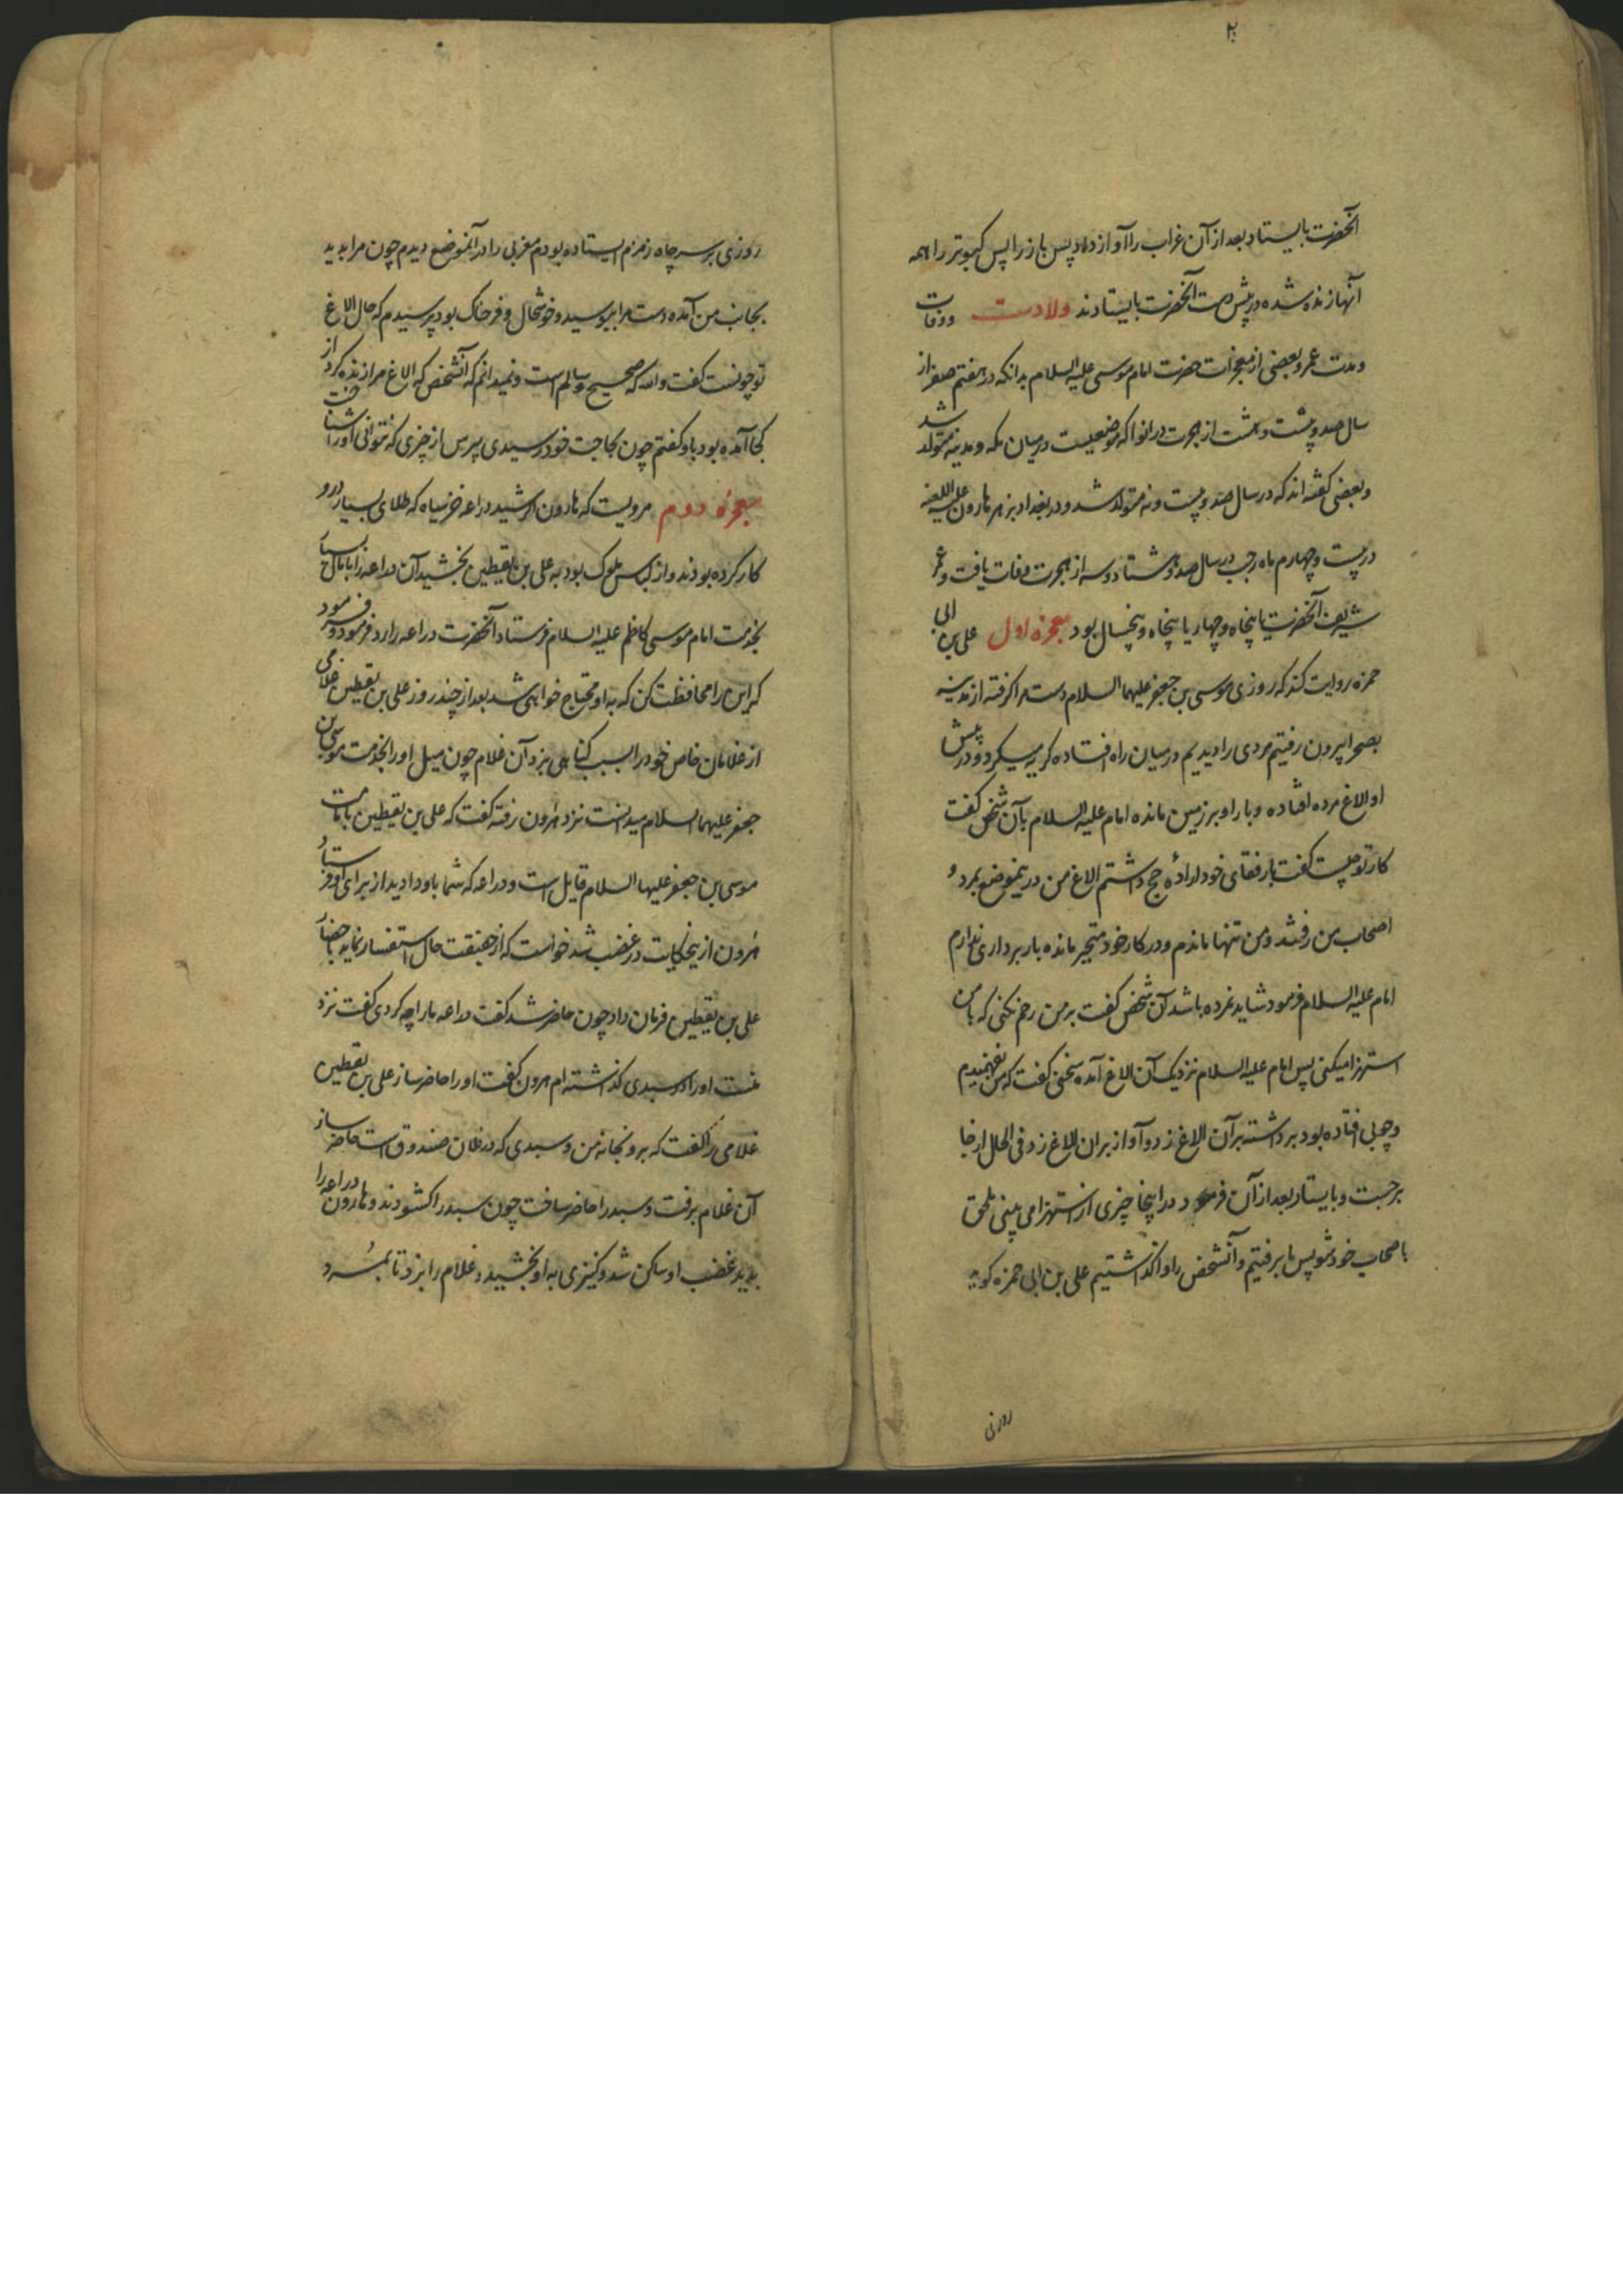 آنحضرت بایستاد بعد از آن غراب را آواز داد پس باز را پس کبوتر را همه
آنها زنده شده در پیش دست آنحضرت بایستادند ولادت ووفات
ومدت عمر وبعضی از معجزات حضرت امام موسی علیه السلام بدانکه در هفتم صفر از
سال صد وبیست وهشت از هجرت در ابوا که موضعیست در میان مکه ومدینه متولد شد
وبعضی گفته اند که در سال صد وبیست ونه متولد شد ودر بغداد بزهر هارون علیه اللعنه
در بیست وچهارم ماه رجب در سال صد وهشتاد وسه از هجرت وفات یافت وعمر
شریف آنحضرت یا پنجاه وچهار یا پنجاه وپنجسال بود معجزه اول علی بن ابی
حمزه روایت کند که روزی موسی بن جعفر علیهما السلام دست مرا گرفته از مدینه
بصحرا بیرون رفتیم مردی را دیدیم در میان راه افتاده گریه میکرد ودر پیش
او الاغ مرده افتاده وبار او بر زمین مانده امام علیه السلام بآن شخص گفت
کار تو چیست گفت با رفقای خود ارادهٔ حج داشتم الاغ من در ینموضع بمرد و
اصحاب من رفتند ومن تنها ماندم ودر کار خود متحیر مانده بار برداری ندارم
امام علیه السلام فرمود شاید نمرده باشد آن شخص گفت بر من رحم نکنی که با من
استهزا میکنی پس امام علیه السلام نزدیک آن الاغ آمده سخنی گفت که من نفهمیدم
وچوبی افتاده بود برداشته بر آن الاغ زد وآواز بر ان الاغ زد فی الحال از جا
برجست وبایستاد بعد از آن فرمود در اینجا چیزی از استهزا می بینی ملحق
باصحاب خود شو پس ما برفتیم وآنشخص را واگذاشتیم علی بن ابی حمزه گوید
روزی
روزی بر سر چاه زمزم ایستاده بودم مغربی را در آنموضع دیدم چون مرا بدید
بجانب من آمده دست مرا ببوسید وخوشحال وفرحناک بود پرسیدم که حال الاغ
تو چونست گفت والله که صحیح وسالم است ونمیدانم که آنشخص که الاغ مرا زنده کرد از
کجا آمده بود باو گفتم چون بحاجت خود رسیدی مپرس از چیزی که نتوانی اورا شناخت
معجزه دوم مرویست که هارون الرشید دراعه خز سیاه که طلای بسیار درو
کار کرده بودند واز لباس ملوک بود به علی بن یقطین بخشید آن دراعه را با مال بسیار
بخدمت امام موسی کاظم علیه السلام فرستاد آنحضرت دراعه را رد فرمود وفرمود
که این را محافظت کن که به او محتاج خواهی شد بعد از چند روز علی بن یقطین غلامی
از غلامان خاص خود را بسبب گناهی بزد آن غلام چون میل اورا بخدمت موسی بن
جعفر علیهما السلام میدانست نزد هرون رفته گفت که علی بن یقطین بامامت
موسی بن جعفر علیهما السلام قایل است ودراعه که شما باو دادید از برای او فرستاد
هرون از ینحکایت در غضب شد خواست که از حقیقت حال استفسار نماید باحضار
علی بن یقطین فرمان داد چون حاضر شد گفت دراعه ما را چه کردی گفت نزد
منست اورا در سبدی گذاشته ام هرون گفت اورا حاضر ساز علی بن یقطین
غلامی را گفت که برو بخانه من وسبدی که در فلان صندوق است حاضر ساز
آن غلام برفت وسبد را حاضر ساخت چون سبد را گشودند وهارون دراعه را
بدید غضب او ساکن شد وکنیزی به او بخشید وغلام را بزد تا بمرد